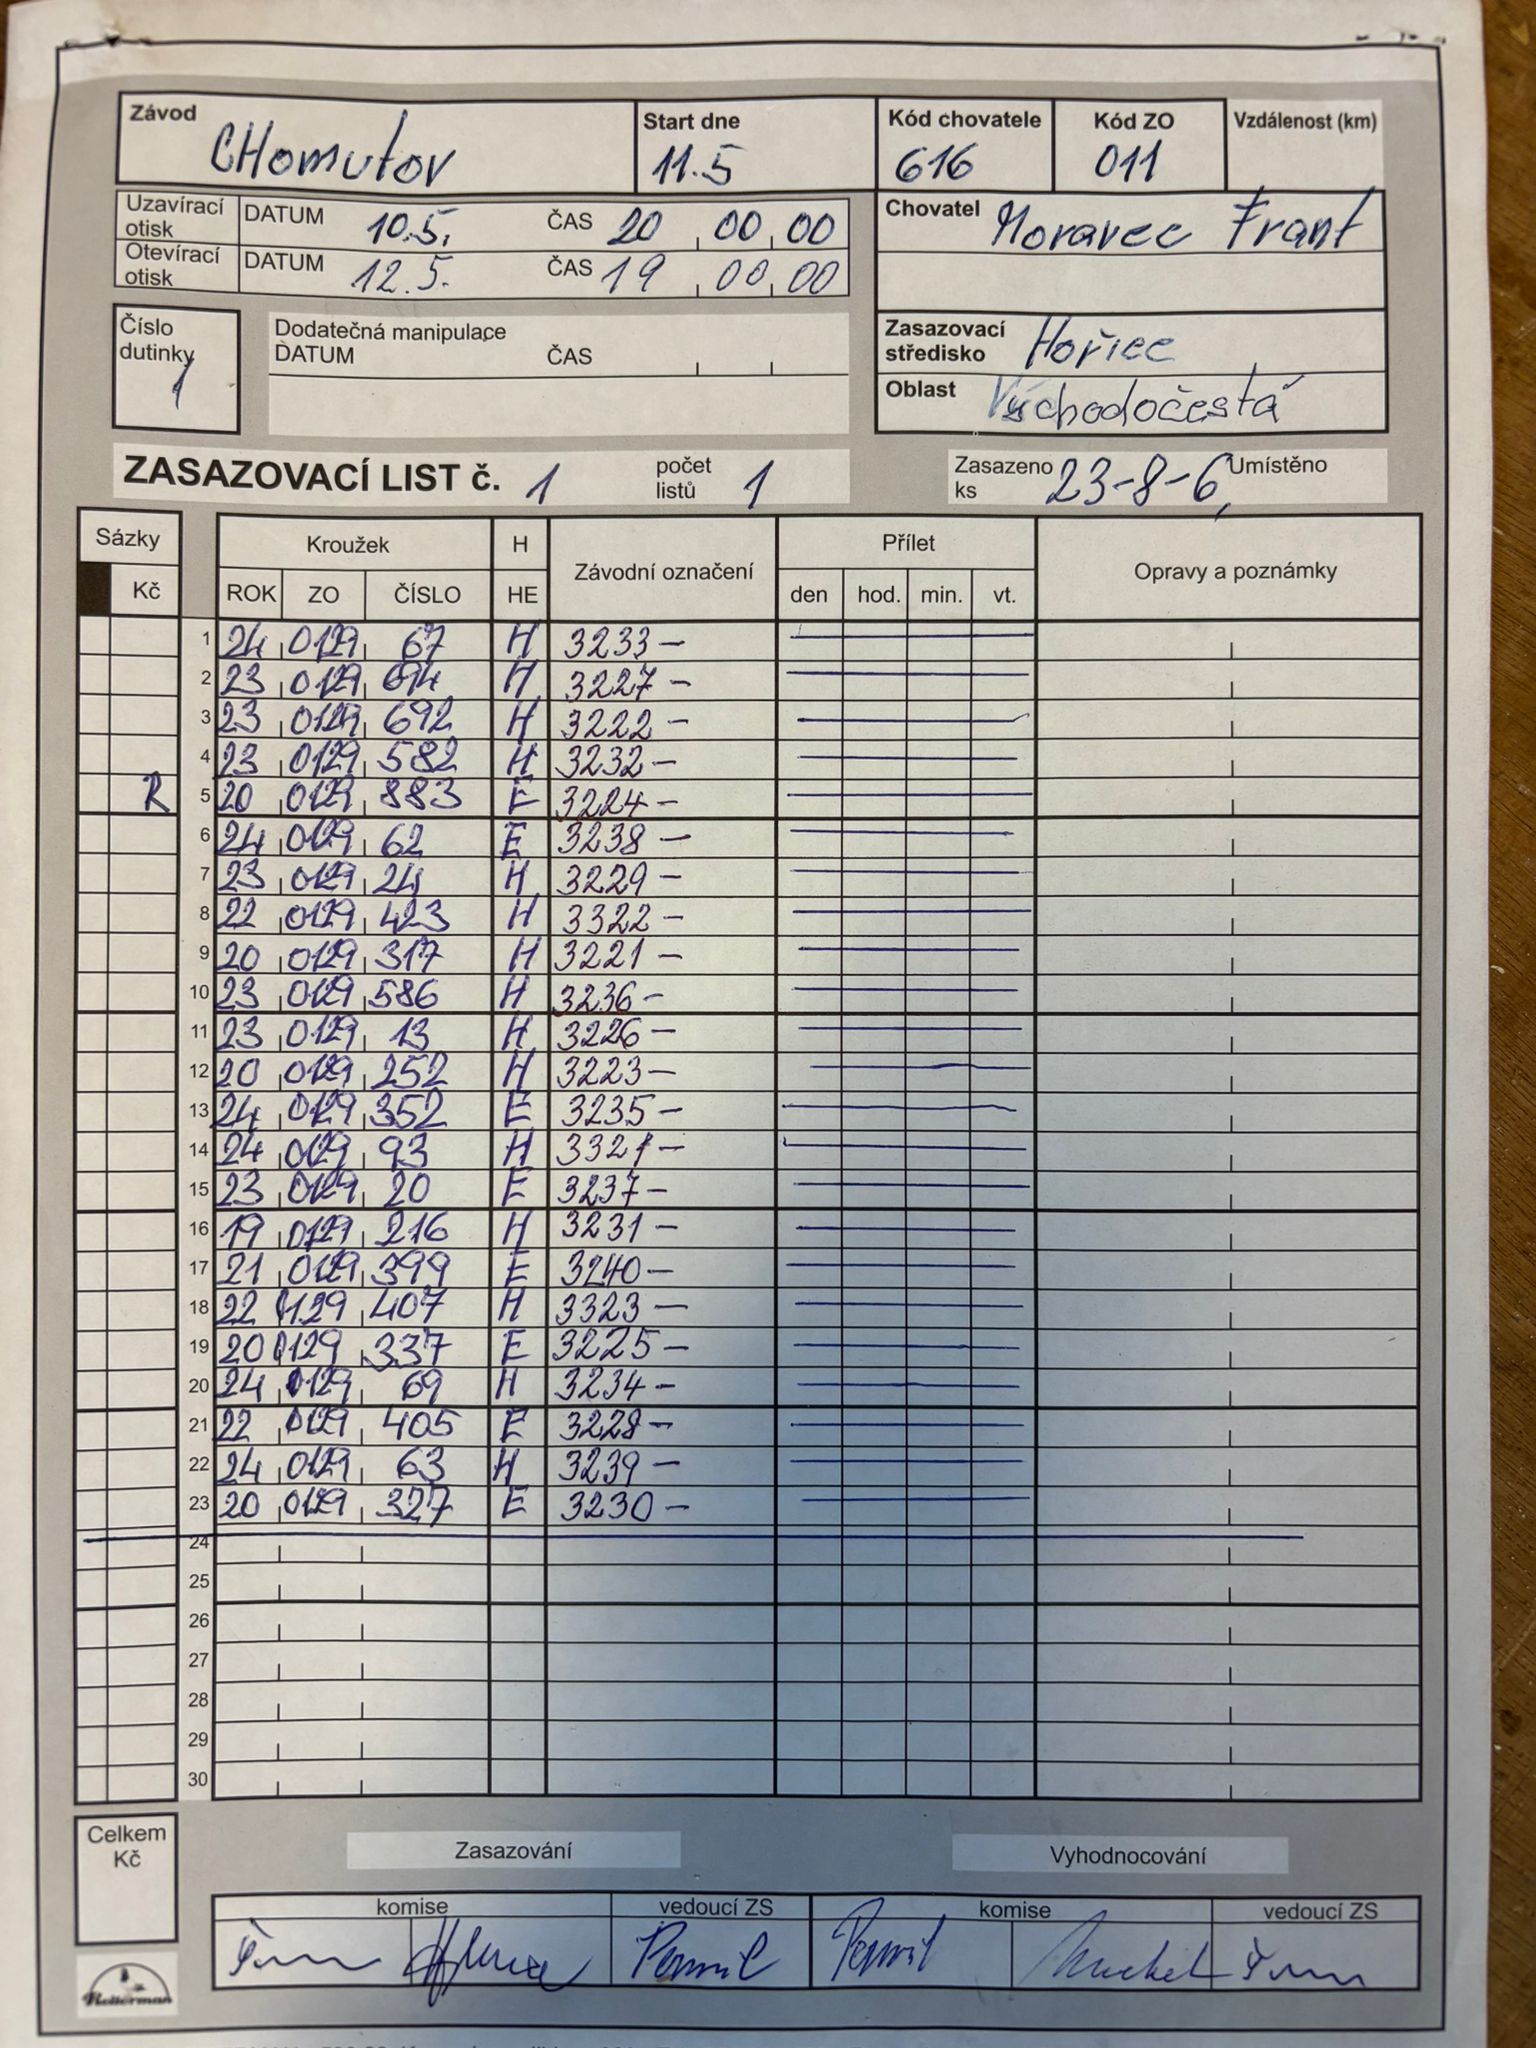 Závod CHomutov Start dne 11.5 Kód chovatele 616 Kód ZO 011 Vzdálenost (km)
Uzavírací otisk DATUM 10.5. ČAS 20 00 00
Otevírací otisk DATUM 12.5. ČAS 19 00 00
Chovatel Moravec Frant
Číslo dutinky 1
Dodatečná manipulace
DATUM ČAS
Zasazovací středisko Hořice
Oblast Východočestá
ZASAZOVACÍ LIST č. 1 počet listů 1 Zasazeno ks 23-8-6, Umístěno
Sázky Kroužek H Závodní označení Přílet Opravy a poznámky
Kč ROK ZO ČÍSLO HE den hod. min. vt.
1 24 0129 67 H 3233 –
2 23 0129 694 H 3227 –
3 23 0129 692 H 3222 –
4 23 0129 582 H 3232 –
R 5 20 0129 883 E 3224 –
6 24 0129 62 E 3238 –
7 23 0129 24 H 3229 –
8 22 0129 423 H 3322 –
9 20 0129 317 H 3221 –
10 23 0129 586 H 3236 –
11 23 0129 13 H 3226 –
12 20 0129 252 H 3223 –
13 24 0129 352 E 3235 –
14 24 0129 93 H 3321 –
15 23 0129 20 E 3237 –
16 19 0129 216 H 3231 –
17 21 0129 399 E 3240 –
18 22 0129 407 H 3323 –
19 20 0129 337 E 3225 –
20 24 0129 69 H 3234 –
21 22 0129 405 E 3228 –
22 24 0129 63 H 3239 –
23 20 0129 327 E 3230 –
24
25
26
27
28
29
30
Celkem Kč
Zasazování Vyhodnocování
komise vedoucí ZS komise vedoucí ZS